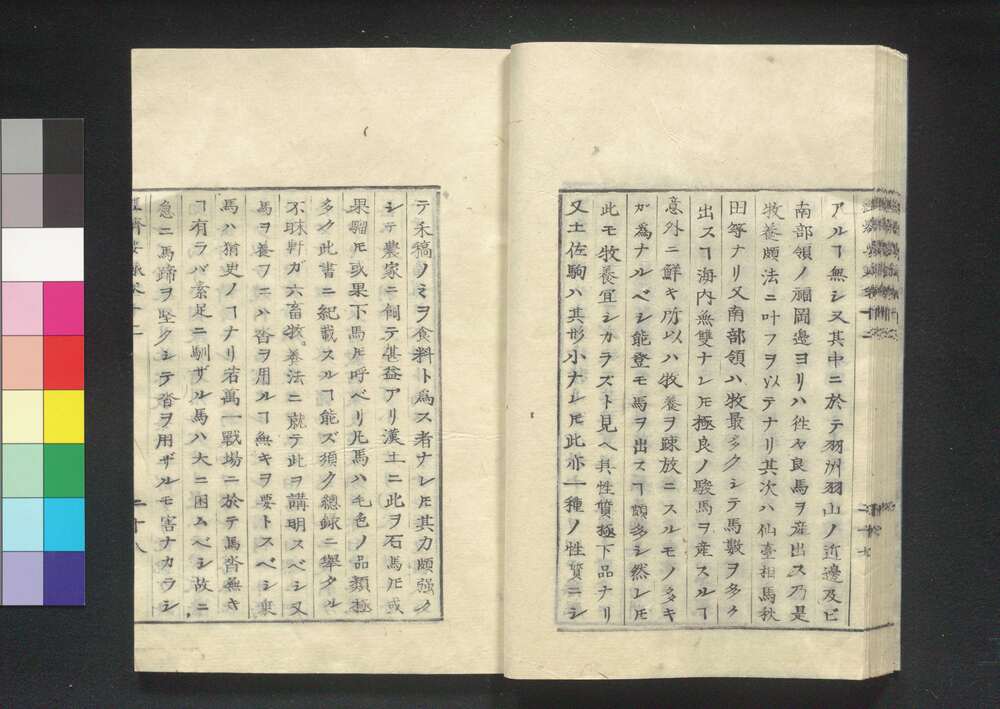 アルヿ無シ又其中ニ於テ羽洲羽山ノ近邊及ビ
南部領ノ福岡邊ヨリハ徃々良馬ヲ産出ス乃是
牧養頗法ニ叶フヲ以テナリ其次ハ仙臺相馬秋
田等ナリ又南部領ハ牧最多クシテ馬數ヲ多ク
出スヿ海内無雙ナレ𪜈極良ノ駿馬ヲ産スルヿ
意外ニ鮮キ所以ハ牧養ヲ踈放ニスルモノ多キ
ガ為ナルベシ能登モ馬ヲ出スヿ頗多シ然レ𪜈
此モ牧養宜シカラズト見ヘ其性質極下品ナリ
又土佐駒ハ其形小ナレ𪜈此亦一種ノ性質ニシ
テ禾稿ノミヲ食料ト為ス者ナレ𪜈其力頗强ク
シテ農家ニ飼テ甚益アリ漢土ニ此ヲ石馬𪜈或
果騮𪜈或果下馬𪜈呼ベリ凡馬ハ毛色ノ品類極
多ク此書ニ紀載スルヿ能ズ須ク總錄ニ舉タル
不昧軒ガ六畜牧養法ニ就テ此ヲ講明スベシ又
馬ヲ養フニハ沓ヲ用ルヿ無キヲ要トスベシ東
馬ハ猶史ノヿナリ若萬一戰場ニ於テ馬沓無キ
ヿ有ラバ素足ニ馴ザル馬ハ大ニ困ムベシ故ニ
急ニ馬蹄ヲ堅クシテ沓ヲ用ザルモ害ナカラシ
二十八